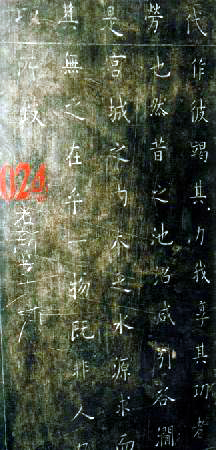 代
勞
是
其
作彼竭其力我享其功者
也然昔之池沼咸引谷澗
宮城之內本乏水源求而
無之在乎一物既非人
所致
024